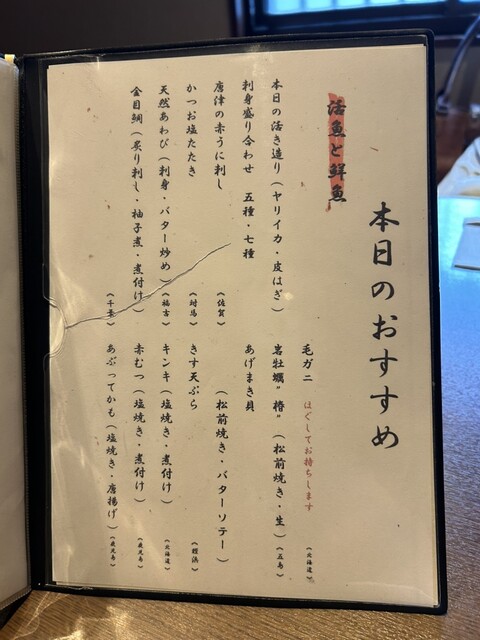 本日のおすすめ
活魚と鮮魚
本日の活き造り（ヤリイカ・皮はぎ）
刺身盛り合わせ　五種・七種
唐津の赤うに刺し（佐賀）
かつお塩たたき（対馬）
天然あわび（刺身・バター炒め）（福吉）
金目鯛（炙り刺し・柚子煮・煮付け）（千葉）
毛ガニ　ほぐしてお持ちします（北海道）
岩牡蠣〝椿〟（松前焼き・生）（五島）
あげまき貝
（松前焼き・バターソテー）
きす天ぷら
キンキ（塩焼き・煮付け）（北海道）
赤むつ（塩焼き・煮付け）（鹿児島）
あぶってかも（塩焼き・唐揚げ）（鹿児島）